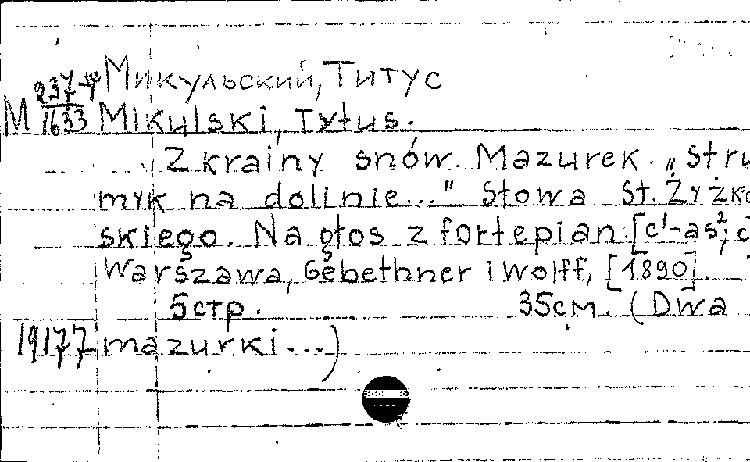 Микульский, Титус
M 237-4/1633 Mikulski, Tytus.
Z krainy snów. Mazurek. „Stru
myk na dolinie..." Słowa St. Żyżko
skiego. Na głos z fortepian. [c¹-as²; c
Warszawa, Gebethner i Wolff, [1890].
5 стр. 35 см. (Dwa
19177 mazurki...)